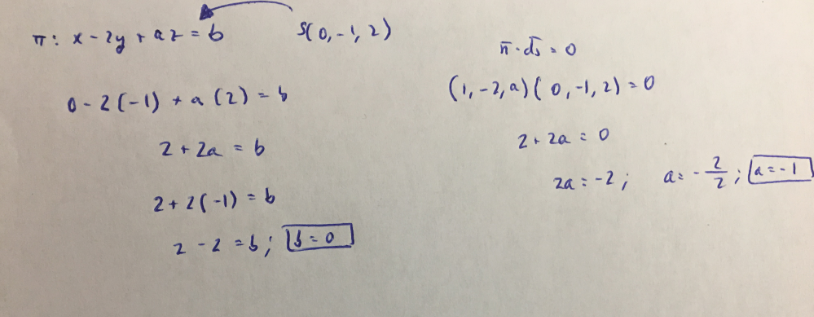 π: x - 2y + az = b
S(0, -1, 2)
0 - 2(-1) + a(2) = b
2 + 2a = b
2 + 2(-1) = b
2 - 2 = b; b = 0
n̄ · d̄s = 0
(1, -2, a)(0, -1, 2) = 0
2 + 2a = 0
2a = -2; a = -2/2; a = -1